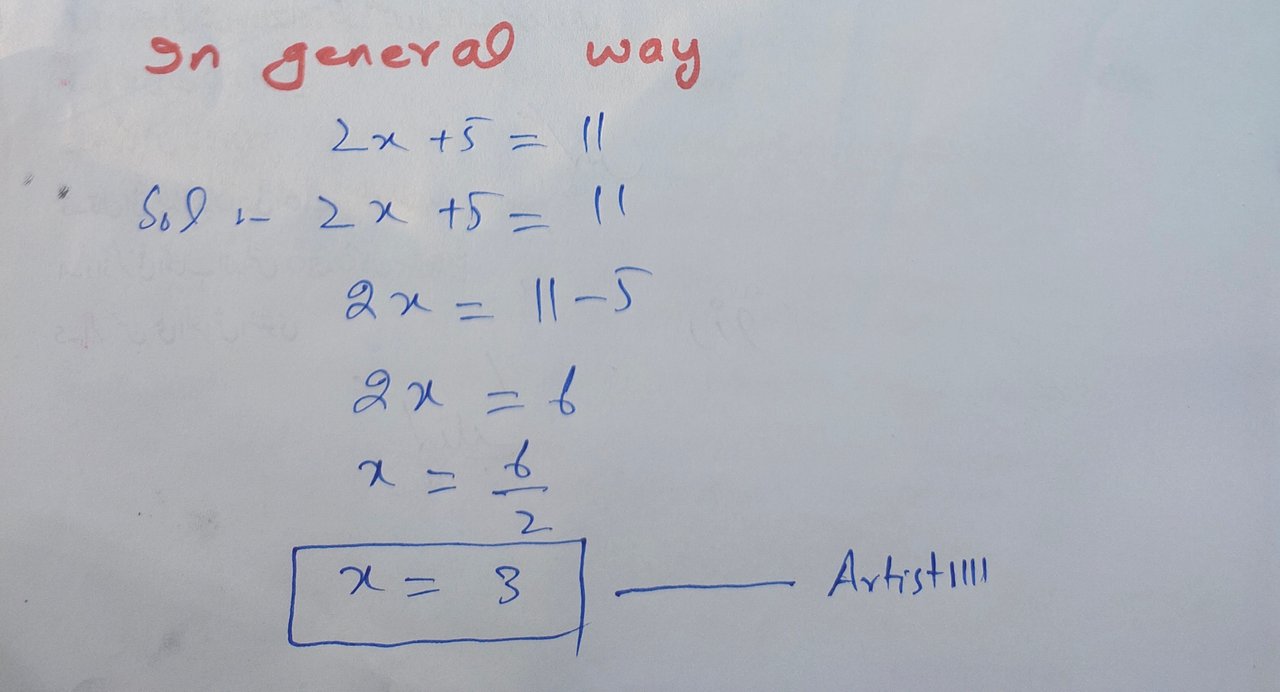 In general way
2x + 5 = 11
Sol :- 2x + 5 = 11
2x = 11 - 5
2x = 6
x = 6/2
x = 3 —— Artist1111